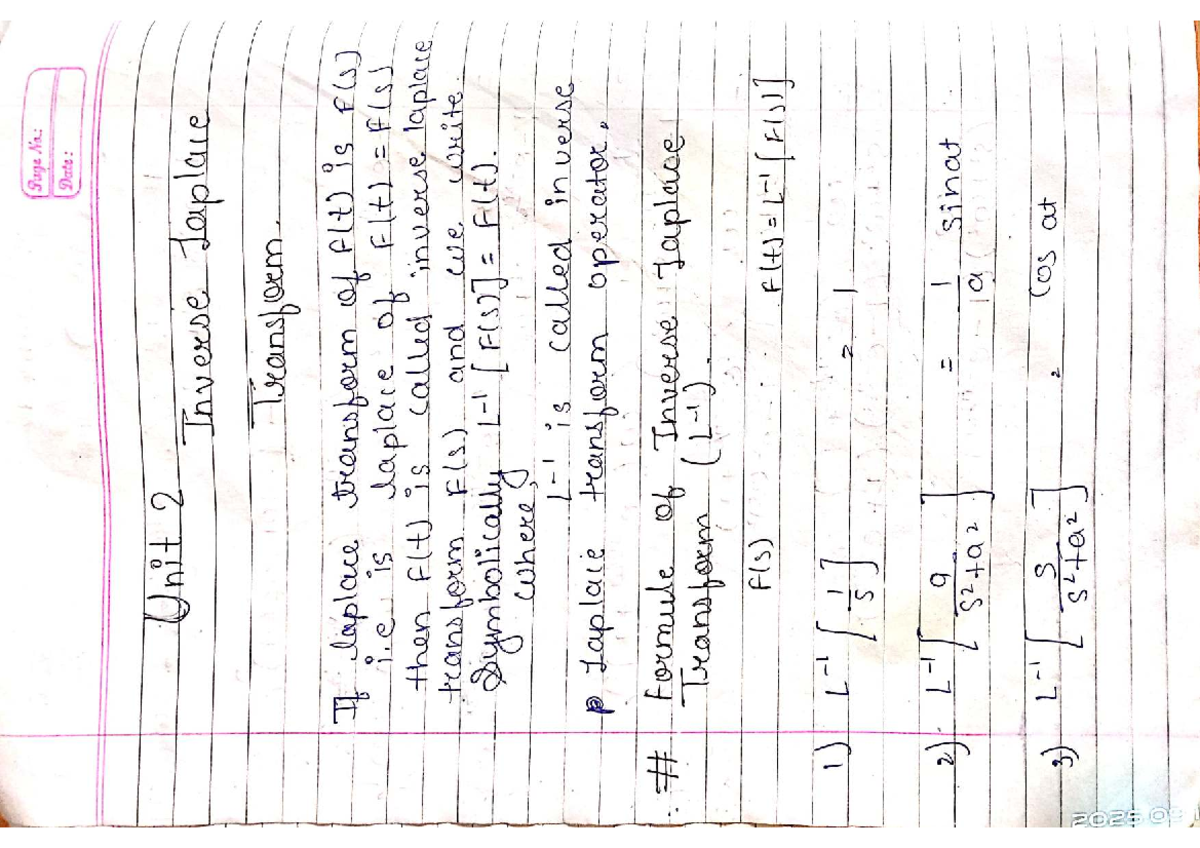 Page No.:
Date:
Unit 2
Inverse Laplace
Transform.
If laplace transform of f(t) is F(s)
i.e is laplace of F(t) = F(s)
then F(t) is called inverse laplace
transform F(s) and we write
Symbolically L⁻¹ [F(s)] = F(t).
where,
L⁻¹ is called inverse
Laplace transform operator.
# Formule of Inverse Laplace
Transform (L⁻¹).
F(s) F(t) = L⁻¹[F(s)]
1) L⁻¹ [1/s] = 1
2) L⁻¹ [a/s²+a²] = 1/a sinat
3) L⁻¹ [s/s²+a²] = cos at